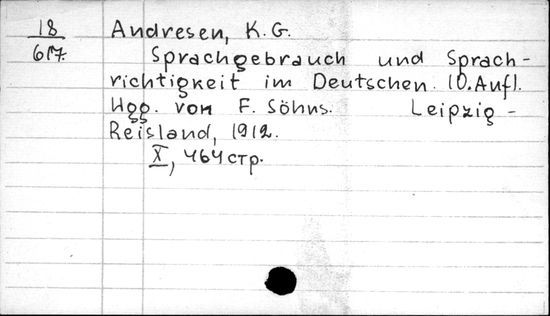 18 Andresen, K. G.
617. Sprachgebrauch und Sprach-
richtigkeit im Deutschen. 10. Aufl.
Hgg. von F. Söhns. Leipzig -
Reisland, 1912.
X, 464 стр.